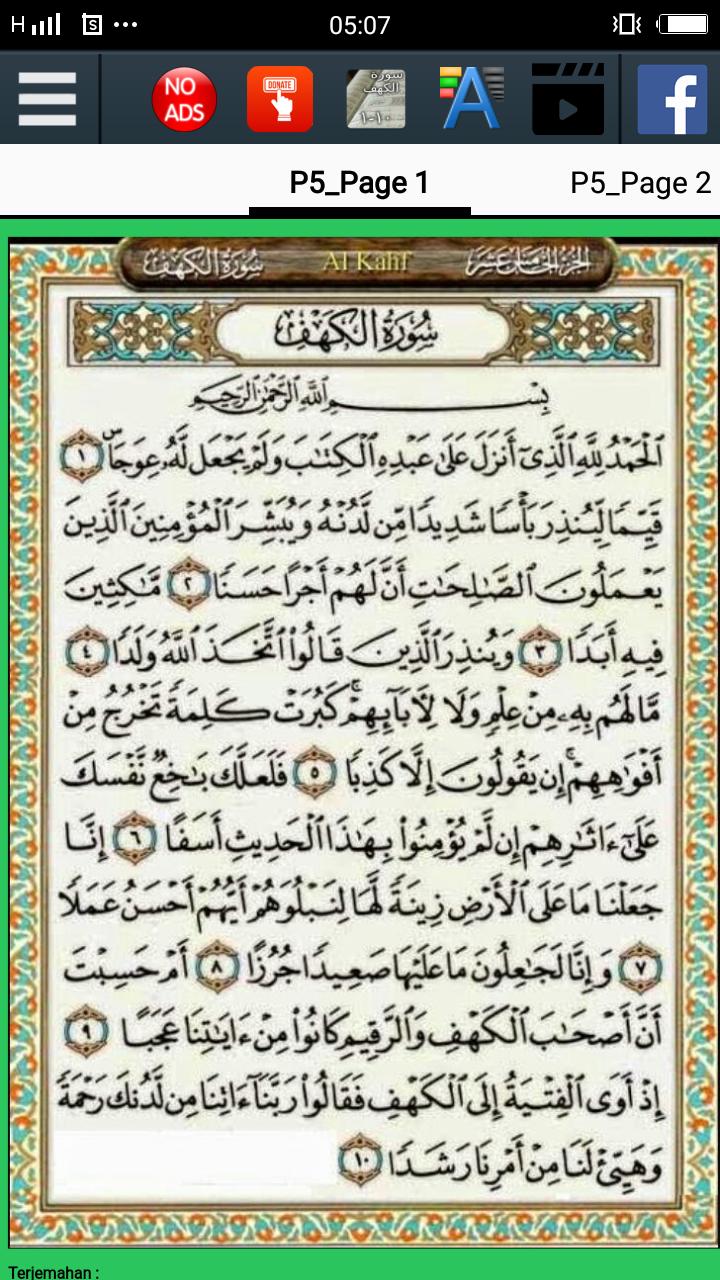 H S ••• 05:07
NO ADS DONATE سورة الكهف ١-١٠ A f
P5_Page 1 P5_Page 2
سُورَةُ الكَهْفِ Al Kahf الجُزْءُ الخَامِسُ عَشَر
سُورَةُ الكَهْفِ
بِسْمِ اللَّهِ الرَّحْمَٰنِ الرَّحِيمِ
ٱلْحَمْدُ لِلَّهِ ٱلَّذِىٓ أَنزَلَ عَلَىٰ عَبْدِهِ ٱلْكِتَٰبَ وَلَمْ يَجْعَل لَّهُۥ عِوَجَاۜ ١
قَيِّمًا لِّيُنذِرَ بَأْسًا شَدِيدًا مِّن لَّدُنْهُ وَيُبَشِّرَ ٱلْمُؤْمِنِينَ ٱلَّذِينَ
يَعْمَلُونَ ٱلصَّٰلِحَٰتِ أَنَّ لَهُمْ أَجْرًا حَسَنًا ٢ مَّٰكِثِينَ
فِيهِ أَبَدًا ٣ وَيُنذِرَ ٱلَّذِينَ قَالُوا۟ ٱتَّخَذَ ٱللَّهُ وَلَدًا ٤
مَّا لَهُم بِهِۦ مِنْ عِلْمٍ وَلَا لِـَٔابَآئِهِمْ ۚ كَبُرَتْ كَلِمَةً تَخْرُجُ مِنْ
أَفْوَٰهِهِمْ ۚ إِن يَقُولُونَ إِلَّا كَذِبًا ٥ فَلَعَلَّكَ بَٰخِعٌ نَّفْسَكَ
عَلَىٰٓ ءَاثَٰرِهِمْ إِن لَّمْ يُؤْمِنُوا۟ بِهَٰذَا ٱلْحَدِيثِ أَسَفًا ٦ إِنَّا
جَعَلْنَا مَا عَلَى ٱلْأَرْضِ زِينَةً لَّهَا لِنَبْلُوَهُمْ أَيُّهُمْ أَحْسَنُ عَمَلًا
٧ وَإِنَّا لَجَٰعِلُونَ مَا عَلَيْهَا صَعِيدًا جُرُزًا ٨ أَمْ حَسِبْتَ
أَنَّ أَصْحَٰبَ ٱلْكَهْفِ وَٱلرَّقِيمِ كَانُوا۟ مِنْ ءَايَٰتِنَا عَجَبًا ٩
إِذْ أَوَى ٱلْفِتْيَةُ إِلَى ٱلْكَهْفِ فَقَالُوا۟ رَبَّنَآ ءَاتِنَا مِن لَّدُنكَ رَحْمَةً
وَهَيِّئْ لَنَا مِنْ أَمْرِنَا رَشَدًا ١٠
Terjemahan :